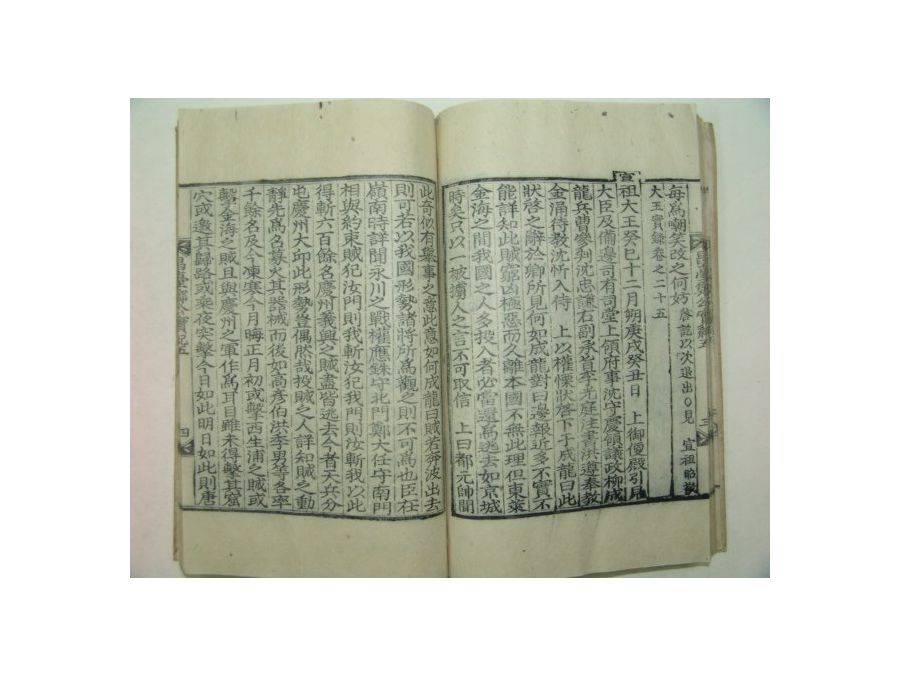 每爲嘲笑改之何妨 啓訖以次退出○見 宣祖昭敬
大王實錄卷之二十五
宣祖大王癸巳十二月朔庚戌癸丑日 上御便殿引見
大臣及備邊司有司堂上領府事沈守慶領議政柳成
龍兵曹參判沈忠謙右副承旨李光庭注書洪遵奉敎
金涌待敎沈忻入侍 上以權慄狀啓下于成龍曰此
狀啓之辭於卿所見何如成龍對曰邊報近多不實不
能詳知此賊窮凶極惡而久離本國不無此理但東萊
金海之間我國之人多投入者必當還爲逃去如京城
時矣只以一坡溝人之言不可取信 上曰都元帥聞
此奇似有擧事之意此意如何成龍曰賊若奔波出去
則可若以我國形勢諸將所爲觀之則不可爲也臣在
嶺南時詳聞永川之戰權應銖守北門鄭大任守南門
相與約束賊犯汝門則我斬汝犯我門則汝斬我以此
得斬六百餘名慶州義興之賊盡皆逃去今者天兵分
屯慶州大丘此形勢豈偶然哉投賊之人詳知賊之動
靜先爲名募火其器械而後如高彦伯洪季男等各率
千餘名及今凍寒今月晦正月初或擊西生浦之賊或
擊金海之賊且與慶州之軍作爲耳目雖未得擊其窟
穴或邀其歸路或乘夜突擊今日如此明日如此則唐
昌臺鄭公實紀五
四